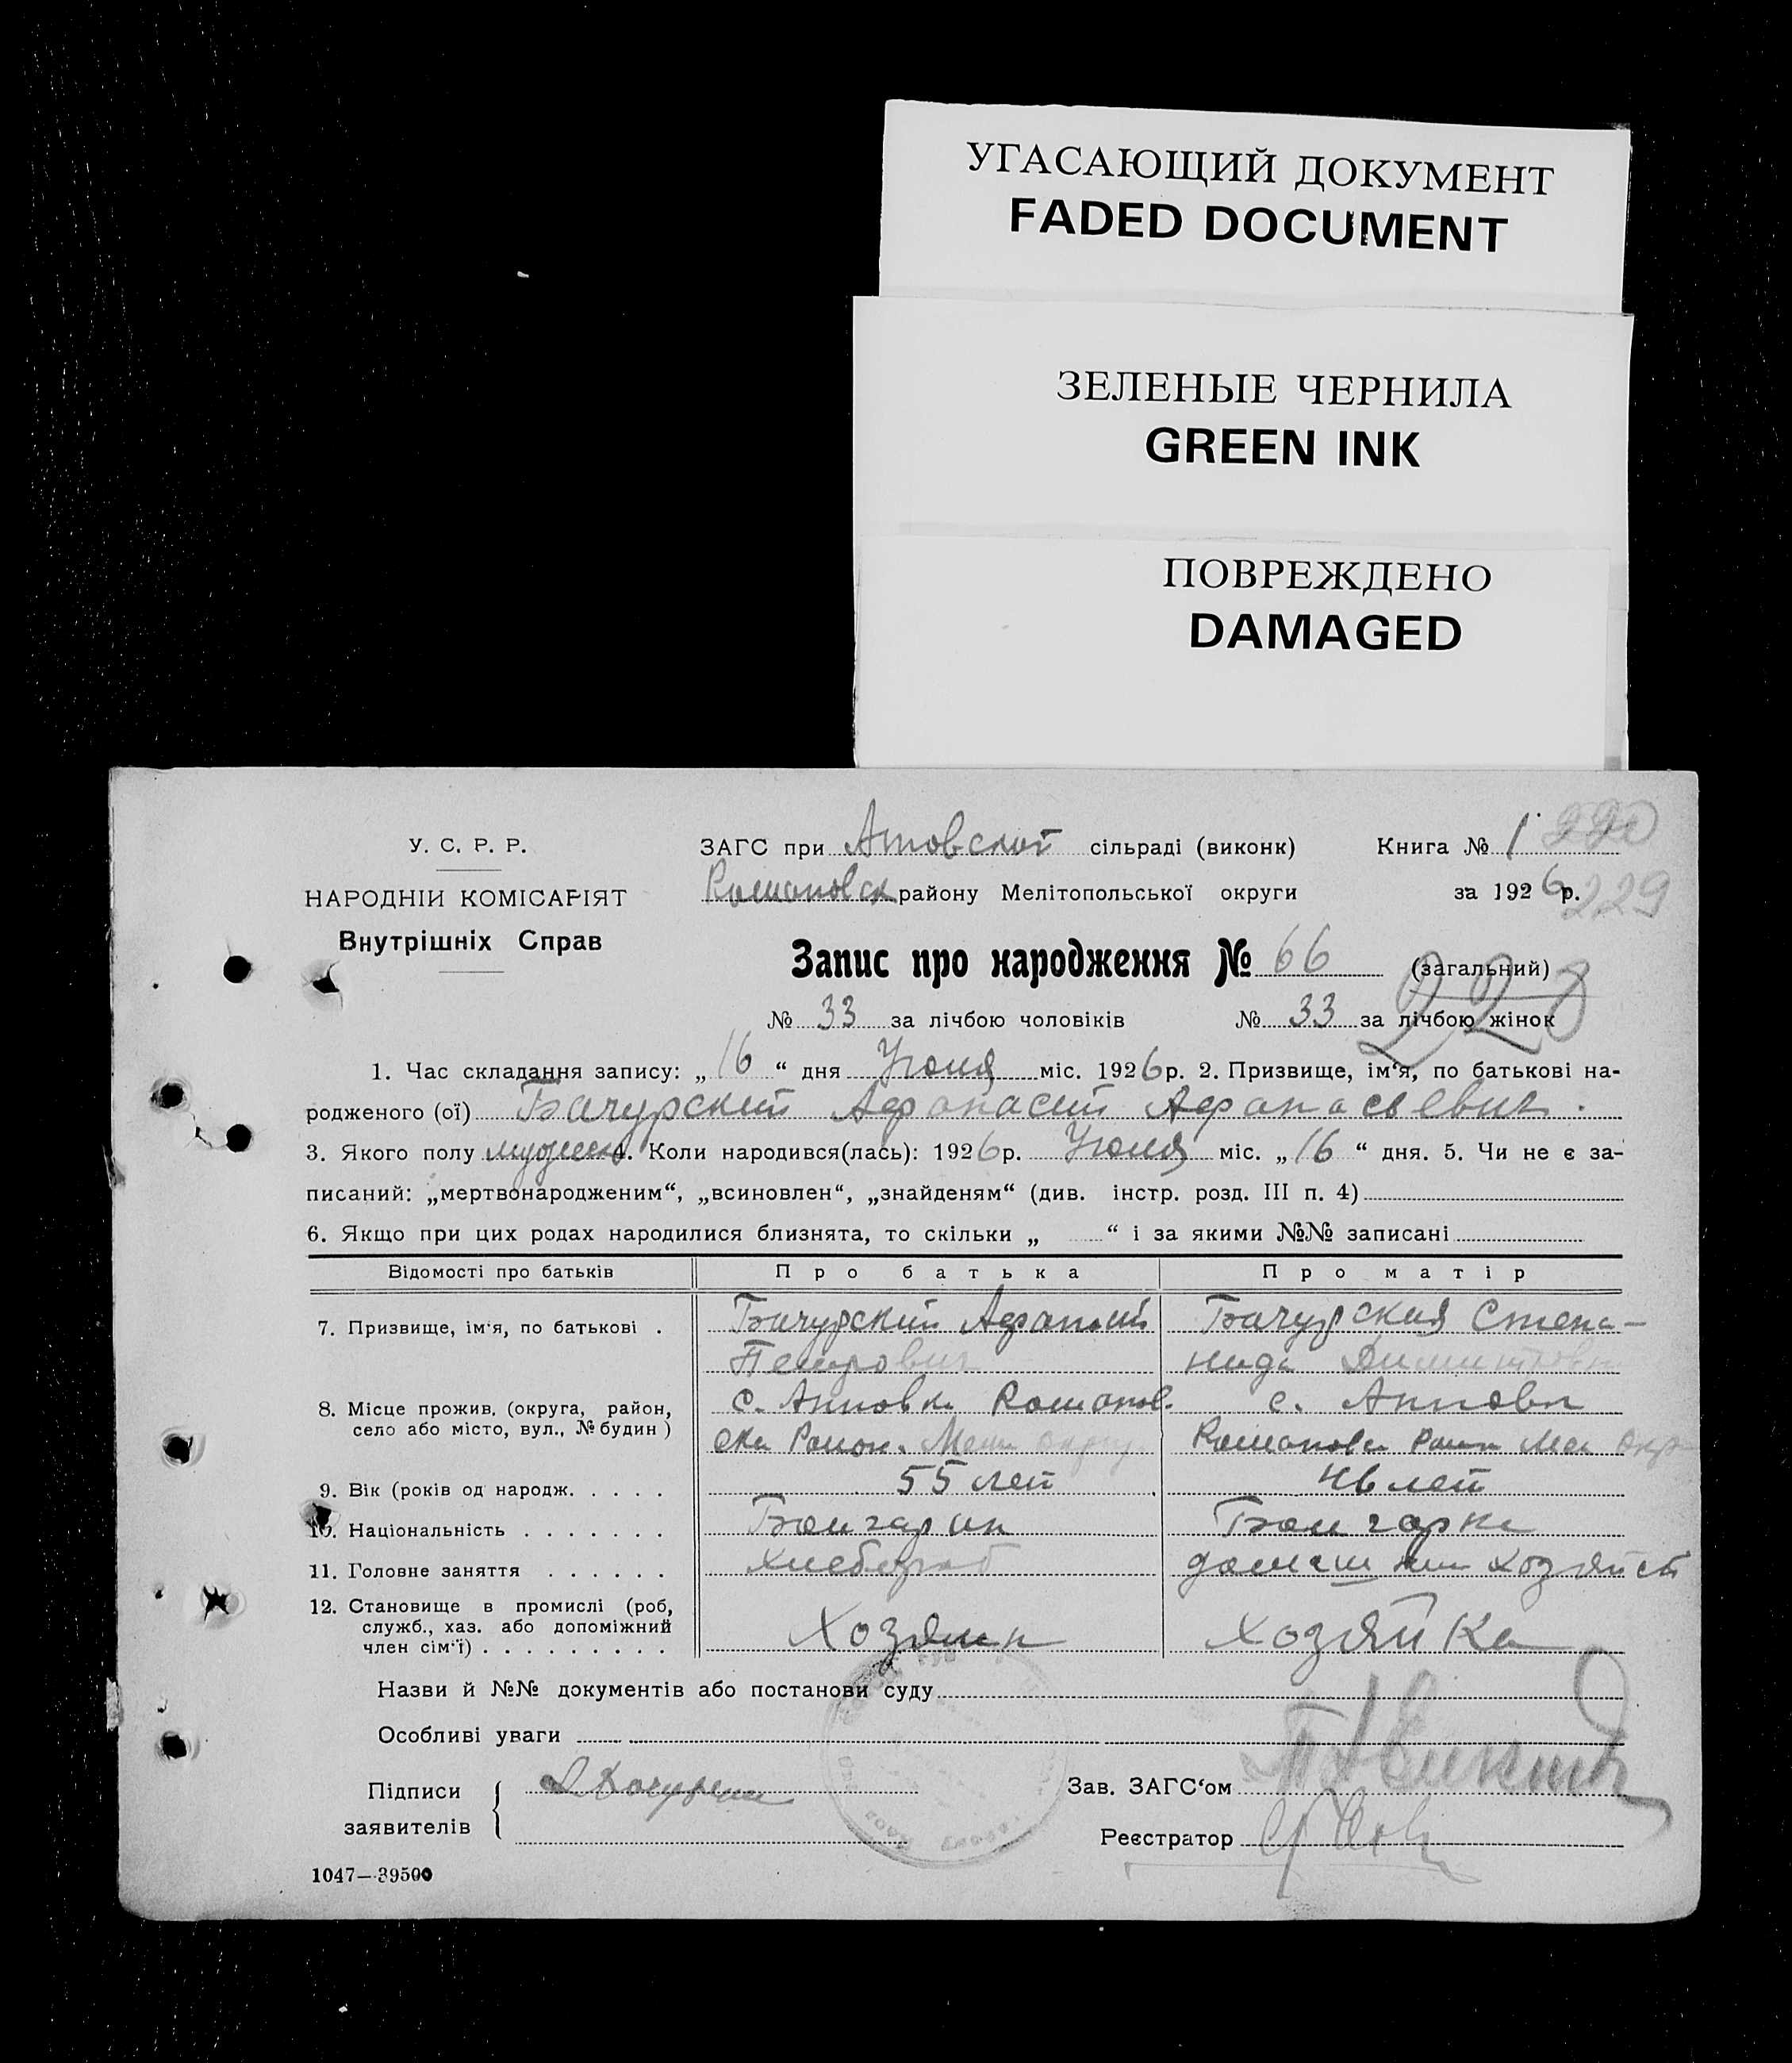 УГАСАЮЩИЙ ДОКУМЕНТ
FADED DOCUMENT
ЗЕЛЕНЫЕ ЧЕРНИЛА
GREEN INK
ПОВРЕЖДЕНО
DAMAGED
У. С. Р. Р.
НАРОДНІЙ КОМІСАРІЯТ
Внутрішніх Справ
ЗАГС при сільраді (виконк) Книга № 1 220
Романовск району Мелітопольської округи за 1926 р. 229
Запис про народження № 66 (загальний)
228
№ 33 за лічбою чоловіків № 33 за лічбою жінок
1. Час складання запису: „ 16 “ дня Июня міс. 1926 р. 2. Призвище, ім‘я, по батькові на-
родженого (ої) Бачурский Афанасий Афанасьевич.
3. Якого полу мужско 4. Коли народився(лась): 1926 р. Июня міс. „ 16 “ дня. 5. Чи не є за-
писаний: „мертвонародженим“, „всиновлен“, „знайденям“ (див. інстр. розд. III п. 4)
6. Якщо при цих родах народилися близнята, то скільки „ “ і за якими №№ записані
Відомості про батьків Про батька Про матір
7. Призвище, ім‘я, по батькові . Бачурский Афанасий Бачурская Степа-
Петрович нида
8. Місце прожив. (округа, район, с. Анновка Романов- с. Анновка
село або місто, вул., № будин) ска Район. Мел округ. Романовск Район Мел окр
9. Вік (років од народж. . . . . 55 лет 46 лет
10. Національність . . . . . . . Болгарин Болгарка
11. Головне заняття . . . . . . хлебороб домашнии хозяйст
12. Становище в промислі (роб, Хозяин хозяйка
служб., хаз. або допоміжний
член сім‘ї) . . . . . . . . .
Назви й №№ документів або постанови суду
Особливі уваги
Підписи
заявителів
Зав. ЗАГС‘ом
Реєстратор
1047—39500